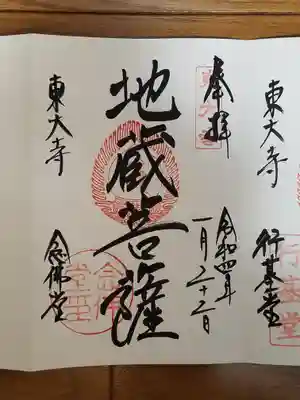 東大寺
行基堂
奉拝
令和四年
一月二十二日
地蔵菩薩
東大寺
念佛堂
東大寺
行基堂